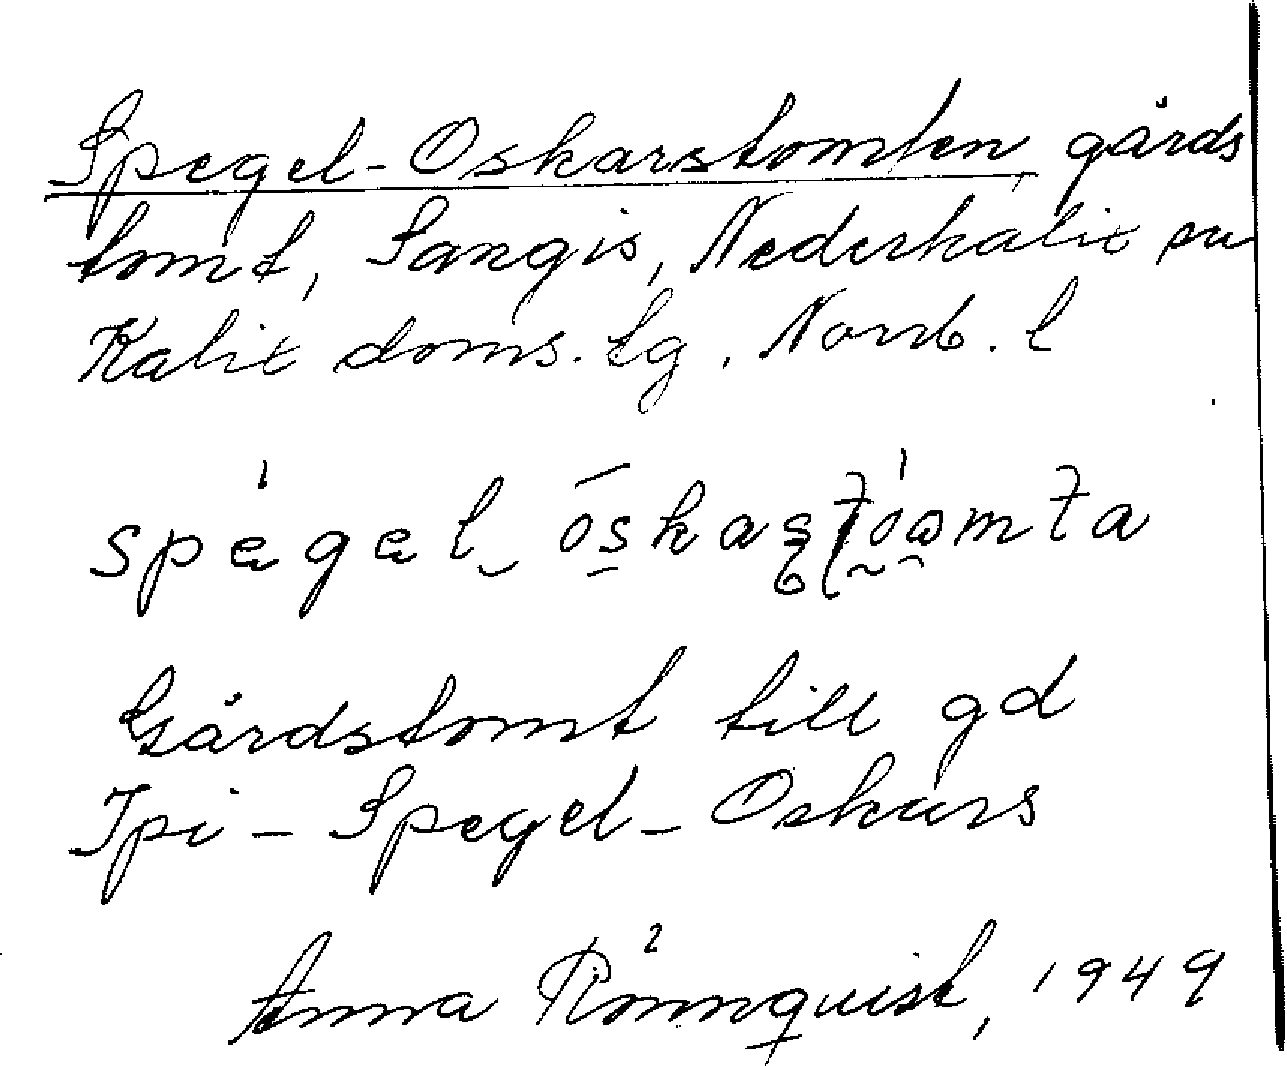 Spegel-Oskarstomten, gårds
tomt, Sangis, Nederkalix sn
Kalix doms. tg, Norrb. l
Gårdstomt till gd
Ipi - Spegel - Oskars
Anna Rönnquist, 1949